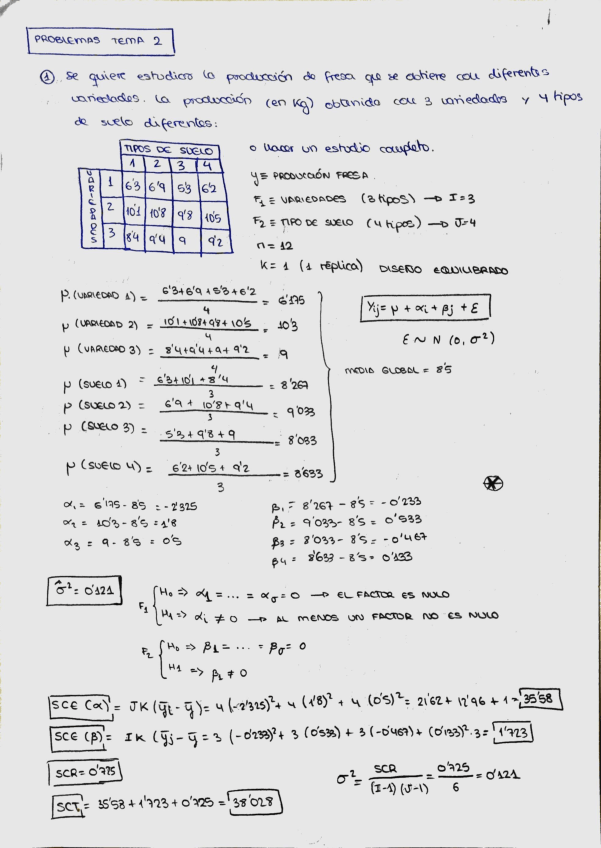 PROBLEMAS TEMA 2
① Se quiere estudiar la producción de fresa que se obtiene con diferentes
variedades. La producción (en Kg) obtenida con 3 variedades y 4 tipos
de suelo diferentes:
o hacer un estudio completo.
TIPOS DE SUELO
1 2 3 4
VARIEDADES
1 6'3 6'9 5'3 6'2
2 10'1 10'8 9'8 10'5
3 8'4 9'4 9 9'2
y ≡ PRODUCCIÓN FRESA
F₁ ≡ VARIEDADES (3 tipos) → I=3
F₂ ≡ TIPO DE SUELO (4 tipos) → J=4
n = 12
K = 1 (1 réplica) DISEÑO EQUILIBRADO
μ (VARIEDAD 1) = (6'3+6'9+5'3+6'2)/4 = 6'175
μ (VARIEDAD 2) = (10'1+10'8+9'8+10'5)/4 = 10'3
μ (VARIEDAD 3) = (8'4+9'4+9+9'2)/4 = 9
μ (SUELO 1) = (6'3+10'1+8'4)/3 = 8'267
μ (SUELO 2) = (6'9 + 10'8+9'4)/3 = 9'033
μ (SUELO 3) = (5'3+9'8+9)/3 = 8'033
μ (SUELO 4) = (6'2+10'5+9'2)/3 = 8'633
Yij = μ + αi + βj + ε
ε ~ N (0, σ²)
MEDIA GLOBAL = 8'5
α₁ = 6'175 - 8'5 = -2'325
α₂ = 10'3 - 8'5 = 1'8
α₃ = 9 - 8'5 = 0'5
β₁ = 8'267 - 8'5 = -0'233
β₂ = 9'033 - 8'5 = 0'533
β₃ = 8'033 - 8'5 = -0'467
β₄ = 8'633 - 8'5 = 0'133
σ̂² = 0'121
F₁ { H₀ ⇒ α₁ = ... = ασ = 0 → EL FACTOR ES NULO
H₁ ⇒ αi ≠ 0 → AL MENOS UN FACTOR NO ES NULO
F₂ { H₀ ⇒ β₁ = ... = βσ = 0
H₁ ⇒ βi ≠ 0
SCE (α) = JK (ȳi - ȳ) = 4 (-2'325)² + 4 (1'8)² + 4 (0'5)² = 21'62 + 12'96 + 1 = 35'58
SCE (β) = IK (ȳj - ȳ = 3 (-0'233)² + 3 (0'533) + 3 (-0'467) + (0'133)²·3 = 1'723
SCR = 0'725
σ² = SCR/((I-1)(J-1)) = 0'725/6 = 0'121
SCT = 35'58 + 1'723 + 0'725 = 38'028